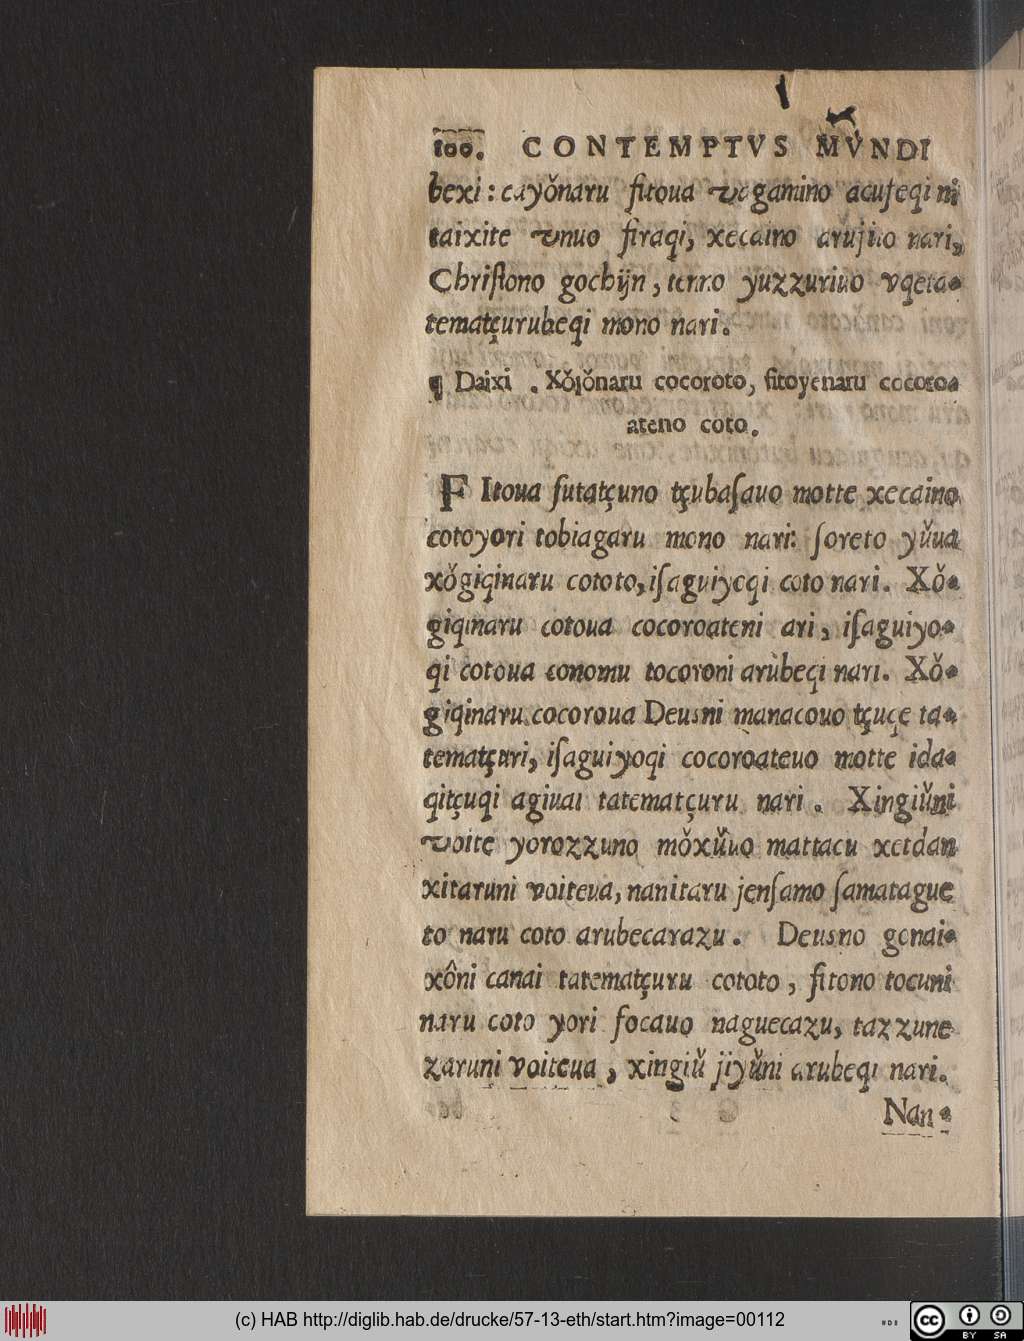 100. CONTEMPTVS MVNDI
bexi: cayǒnaru fitoua vo ganino acuſeqi ni
taixite vnuo firaqi, xecaino arujiuo nari,
Chriſtono gochijn, tenno yuzzuriuo vqeta-
tematçurubeqi mono nari.
¶ Daixi . Xǒjǒnaru cocoroto, fitoyenaru cocoro-
ateno coto.
FItoua futatçuno tçubaſauo motte xecaino
cotoyori tobiagaru mono nari: ſoreto yǔua
xǒgiqinaru cototo, iſaguiyeqi coto nari. Xǒ-
giqinaru cotoua cocoroateni ari, iſaguiyo-
qi cotoua conomu tocoroni arùbeqi nari. Xǒ-
giqinaru cocoroua Deusni manacouo tçuqe ta-
tematçuri, iſaguiyoqi cocoroateuo motte ida-
qitçuqi agiuai tatematçuru nari . Xingiǔni
voite yorozzuno mǒxǔuo mattacu xetdan
xitaruni voiteua, nanitaru jenſamo ſamatague
to naru coto arubecarazu . Deusno gonai-
xôni canai tatematçuru cototo , fitono tocuni
naru coto yori focauo naguecazu, tazzune
zaruni voiteua , xingiǔ jiyǔni arubeqi nari.
Nan-
(c) HAB http://diglib.hab.de/drucke/57-13-eth/start.htm?image=00112
cc BY SA